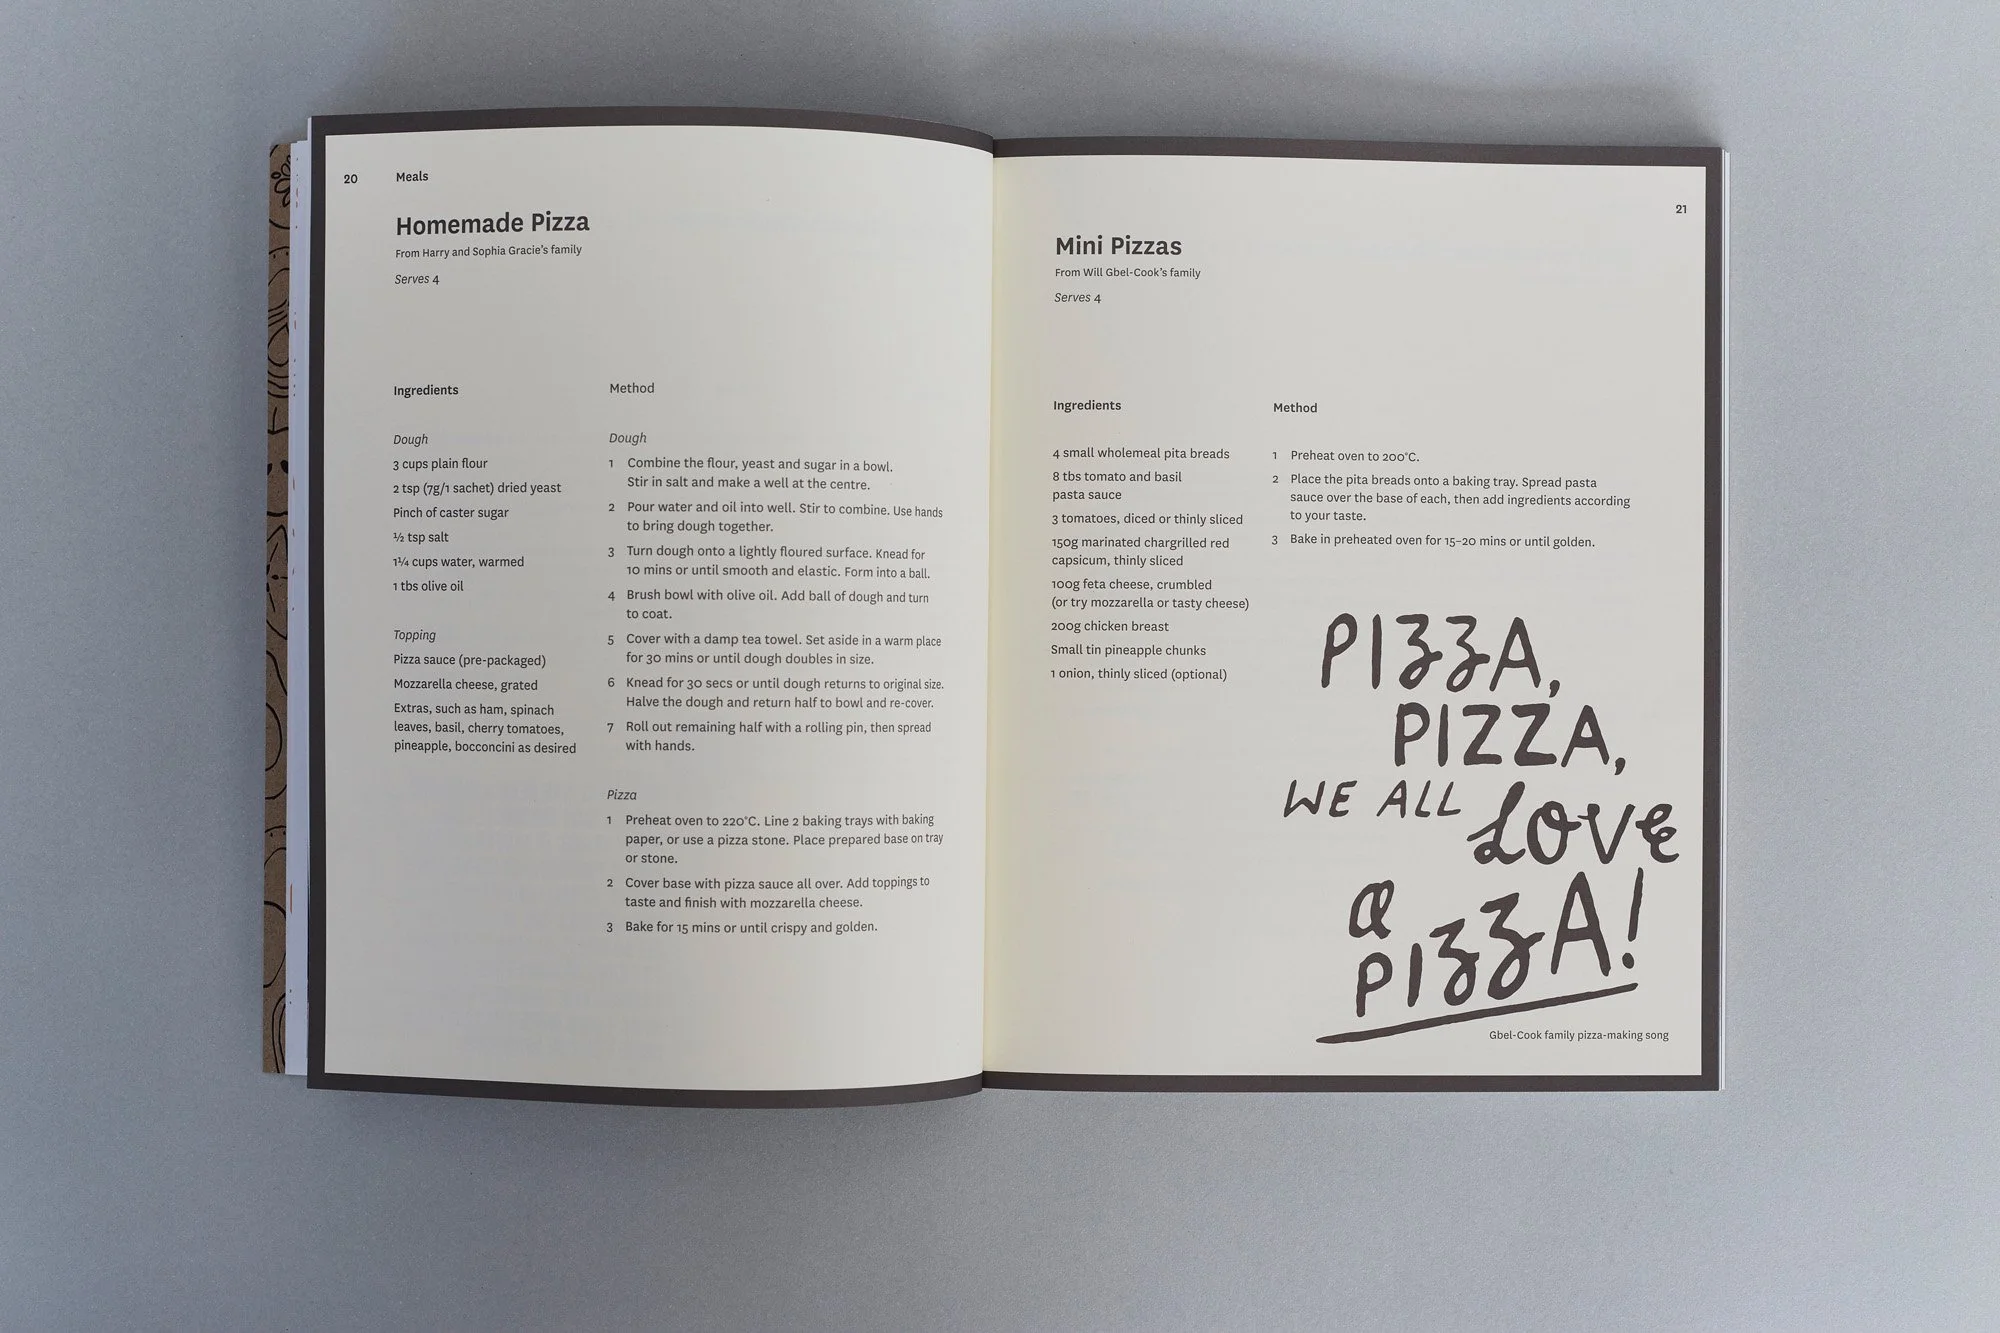 20
Meals
Homemade Pizza
From Harry and Sophia Gracie's family
Serves 4
Ingredients
Dough
3 cups plain flour
2 tsp (7g/1 sachet) dried yeast
Pinch of caster sugar
½ tsp salt
1¼ cups water, warmed
1 tbs olive oil
Topping
Pizza sauce (pre-packaged)
Mozzarella cheese, grated
Extras, such as ham, spinach
leaves, basil, cherry tomatoes,
pineapple, bocconcini as desired
Method
Dough
1 Combine the flour, yeast and sugar in a bowl.
Stir in salt and make a well at the centre.
2 Pour water and oil into well. Stir to combine. Use hands
to bring dough together.
3 Turn dough onto a lightly floured surface. Knead for
10 mins or until smooth and elastic. Form into a ball.
4 Brush bowl with olive oil. Add ball of dough and turn
to coat.
5 Cover with a damp tea towel. Set aside in a warm place
for 30 mins or until dough doubles in size.
6 Knead for 30 secs or until dough returns to original size.
Halve the dough and return half to bowl and re-cover.
7 Roll out remaining half with a rolling pin, then spread
with hands.
Pizza
1 Preheat oven to 220°C. Line 2 baking trays with baking
paper, or use a pizza stone. Place prepared base on tray
or stone.
2 Cover base with pizza sauce all over. Add toppings to
taste and finish with mozzarella cheese.
3 Bake for 15 mins or until crispy and golden.
21
Mini Pizzas
From Will Gbel-Cook's family
Serves 4
Ingredients
4 small wholemeal pita breads
8 tbs tomato and basil
pasta sauce
3 tomatoes, diced or thinly sliced
150g marinated chargrilled red
capsicum, thinly sliced
100g feta cheese, crumbled
(or try mozzarella or tasty cheese)
200g chicken breast
Small tin pineapple chunks
1 onion, thinly sliced (optional)
Method
1 Preheat oven to 200°C.
2 Place the pita breads onto a baking tray. Spread pasta
sauce over the base of each, then add ingredients according
to your taste.
3 Bake in preheated oven for 15–20 mins or until golden.
PIZZA,
PIZZA,
WE ALL LOVE
a
PIZZA!
Gbel-Cook family pizza-making song